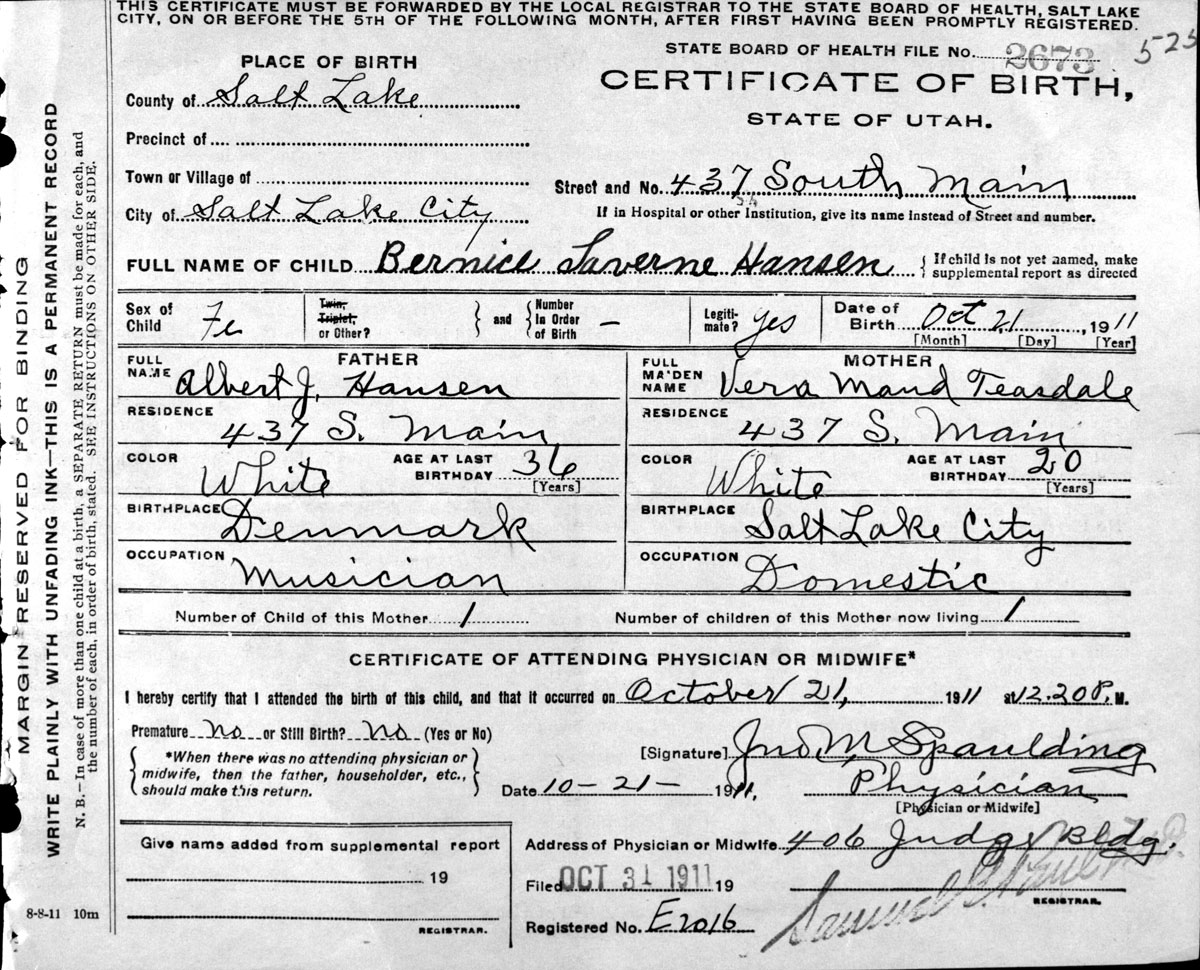 THIS CERTIFICATE MUST BE FORWARDED BY THE LOCAL REGISTRAR TO THE STATE BOARD OF HEALTH, SALT LAKE
CITY, ON OR BEFORE THE 5TH OF THE FOLLOWING MONTH, AFTER FIRST HAVING BEEN PROMPTLY REGISTERED.
STATE BOARD OF HEALTH FILE No. 2673 525
PLACE OF BIRTH
CERTIFICATE OF BIRTH,
STATE OF UTAH.
County of Salt Lake
Precinct of
Town or Village of
Street and No. 437 South Main
City of Salt Lake City
If in Hospital or other Institution, give its name instead of Street and number.
FULL NAME OF CHILD Bernice Laverne Hansen { If child is not yet named, make
supplemental report as directed
Sex of Child Fe
Twin, Triplet, or Other? } and { Number in Order of Birth –
Legiti-mate? yes
Date of Birth Oct 21, 1911
[Month] [Day] [Year]
FATHER
FULL NAME Albert J. Hansen
RESIDENCE
437 S. Main
COLOR White AGE AT LAST BIRTHDAY 36
[Years]
BIRTHPLACE Denmark
OCCUPATION Musician
MOTHER
FULL MAIDEN NAME Vera Maud Teasdale
RESIDENCE
437 S. Main
COLOR White AGE AT LAST BIRTHDAY 20
[Years]
BIRTHPLACE Salt Lake City
OCCUPATION Domestic
Number of Child of this Mother 1 Number of children of this Mother now living 1
CERTIFICATE OF ATTENDING PHYSICIAN OR MIDWIFE*
I hereby certify that I attended the birth of this child, and that it occurred on October 21, 1911 at 12.20 P. M.
Premature No or Still Birth? No (Yes or No)
{ *When there was no attending physician or
midwife, then the father, householder, etc.,
should make this return. }
[Signature] Jno. M Spaulding
Date 10-21- 1911. Physician
[Physician or Midwife]
Give name added from supplemental report
19
REGISTRAR.
Address of Physician or Midwife 406 Judge Bldg.
Filed OCT 31 1911 19
Samuel G. Paul M.D.
REGISTRAR.
Registered No. E2016
8-8-11 10m
MARGIN RESERVED FOR BINDING
WRITE PLAINLY WITH UNFADING INK—THIS IS A PERMANENT RECORD
N. B.—In case of more than one child at a birth, a SEPARATE RETURN must be made for each, and
the number of each, in order of birth, stated. SEE INSTRUCTIONS ON OTHER SIDE.